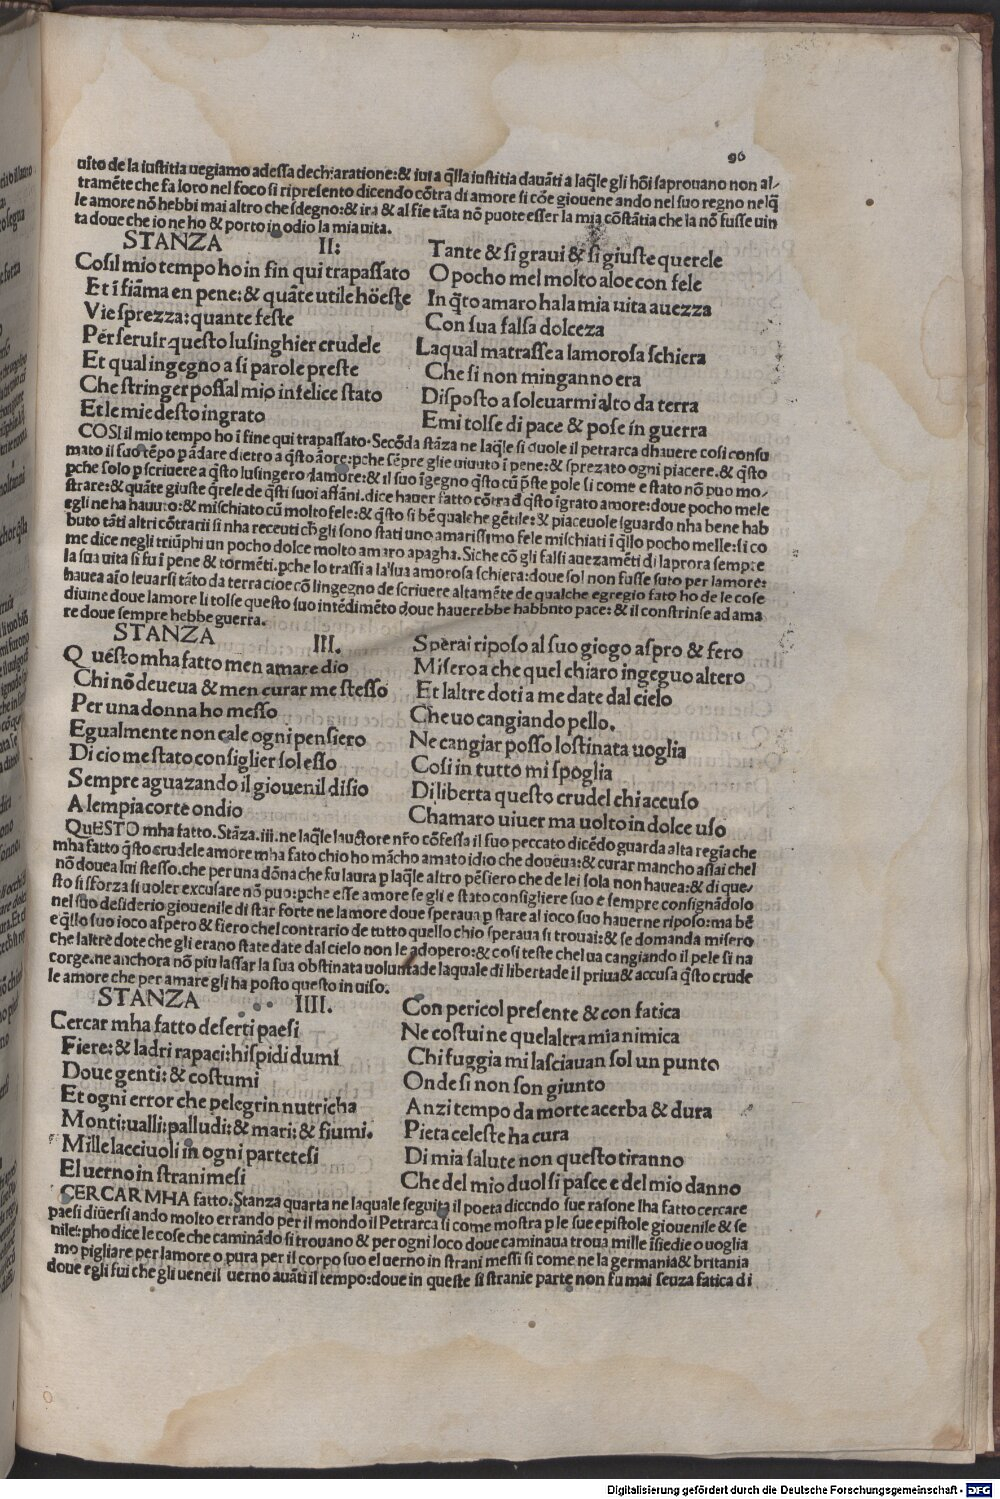 96
uîto de la iustitia uegiamo adessa dechiaratione:& iui a q̃lla iustitia dauãti a laq̃le gli hõi saprouano non al-
tramẽte che fa loro nel foco si ripresento dicendo cõtra di amore si cõe giouene ando nel suo regno nelq̃
le amore nõ hebbi mai altro che sdegno:& ira & al fie tãta nõ puote esser la mia cõstãtia che la nõ fusse uin
ta doue che io ne ho & porto in odio la mia uita.
STANZA II:
Cosil mio tempo ho in fin qui trapassato
Et ĩ fiãma en pene:& quãte utile hõeste
Vie sprezza:quante feste
Per seruir questo lusinghier crudele
Et qual ingegno a si parole preste
Che stringer possal mio infelice stato
Et le mie desto ingrato
Tante & si graui & si giuste querele
O pocho mel molto aloe con fele
In q̃to amaro ha la mia uita auezza
Con sua falsa dolceza
Laqual matrasse a lamorosa schiera
Che si non minganno era
Disposto a soleuarmi alto da terra
E mi tolse di pace & pose in guerra
COSI il mio tempo ho ĩ fine qui trapassato. Secõda stãza ne laq̃le si duole il petrarca dhauere cosi consu
mato il suo tẽpo p ãdare dietro a q̃sto ãore:pche sẽpre glie uiuuto ĩ pene:& sprezato ogni piacere.& q̃sto
pche solo p scriuere a q̃sto lusingero damore:& il suo ĩgegno q̃sto cũ p̃ste pole si come e stato nõ puo mo-
strare:& quãte giuste q̃rele de q̃sti suoi affãni.dice hauer fatto cõtra d̃ q̃sto ĩgrato amore:doue pocho mele
egli ne ha hauuto:& mischiato cũ molto fele:& q̃sto si bẽ qualche gẽtile:& piaceuole sguardo nha bene hab
buto tãti altri cõtrarii si nha receuti ch̃ gli sono stati uno amarissimo fele mischiati ĩ q̃llo pocho melle:si co
me dice negli triũphi un pocho dolce molto amaro apagha. Siche cõ gli falsi auezamẽti di laprora sempre
la sua uita si fu ĩ pene & tormẽti.pche lo trassi a la sua amorosa schiera:doue sol non fusse suto per lamore:
hauea aĩo leuarsi tãto da terra cioe cõ lingegno de scriuere altamẽte de qualche egregio fato ho de le cose
diuine doue lamore li tolse questo suo intẽdimẽto doue hauerebbe habbnto pace:& il constrinse ad ama
re doue sempre hebbe guerra.
STANZA III.
Questo mha fatto men amare dio
Chi nõ deueua & men curar me stesso
Per una donna ho messo
Egualmente non cale ogni pensiero
Di cio me stato consiglier sol esso
Sempre aguazando il giouenil disio
A lempia corte ondio
Sperai riposo al suo giogo aspro & fero
Misero a che quel chiaro ingeguo altero
Et laltre doti a me date dal cielo
Che uo cangiando pello.
Ne cangiar posso lostinata uoglia
Cosi in tutto mi spoglia
Di liberta questo crudel chi accuso
Chamaro uiuer ma uolto in dolce uso
QuESTO mha fatto. Stãza.iii.ne laq̃le lauctore nr̃o cõfessa il suo peccato dicẽdo guarda alta regĩa che
mha fatto q̃sto crudele amore mha fato chio ho mãcho amato idio che doueua:& curar mancho assai chel
nõ douea lui stesso.che per una dõna che fu laura p laq̃le altro pẽsiero che de lei sola non hauea:& di que-
sto si sforza si uoler excusare nõ puo:pche esse amore se gli e stato consigliere suo e sempre consignãdolo
nel suo desiderio giouenile di star forte ne lamore doue speraua p stare al ioco suo hauerne riposo:ma bẽ
e q̃llo suo ioco aspero & fiero chel contrario de tutto quello chio speraua si trouai:& se domanda misero
che laltre dote che gli erano state date dal cielo non le adopero:& cosi teste chel ua cangiando il pele si na
corge.ne anchora nõ piu lassar la sua obstinata uoluntade laquale di libertade il priua & accusa q̃sto crude
le amore che per amare gli ha posto questo in uiso.
STANZA IIII.
Cercar mha fatto deserti paesi
Fiere:& ladri rapaci:hispidi dumi
Doue genti:& costumi
Et ogni error che pelegrin nutricha
Monti:ualli:palludi:& mari:& fiumi.
Mille lacciuoli in ogni parte tesi
El uerno in strani mesi
Con pericol presente & con fatica
Ne costui ne quelaltra mia nimica
Chi fuggia mi lasciauan sol un punto
Onde si non son giunto
Anzi tempo da morte acerba & dura
Pieta celeste ha cura
Di mia salute non questo tiranno
Che del mio duol si pasce e del mio danno
CERCAR MHA fatto.Stanza quarta ne laquale seguita il poeta dicendo sue rasone lha fatto cercare
paesi diuersi ando molto errando per il mondo il Petrarca si come mostra p le sue epistole giouenile & se
nile:pho dice le cose che caminãdo si trouano & per ogni loco doue caminaua troua mille ĩsiedie o uoglia
mo pigliare per lamore o pura per il corpo suo el uerno in strani messi si come ne la germania & britania
doue egli fui che gli uene il uerno auãti il tempo:doue in queste si stranie parte non fu mai seuza fatica di
Digitalisierung gefördert durch die Deutsche Forschungsgemeinschaft - DFG